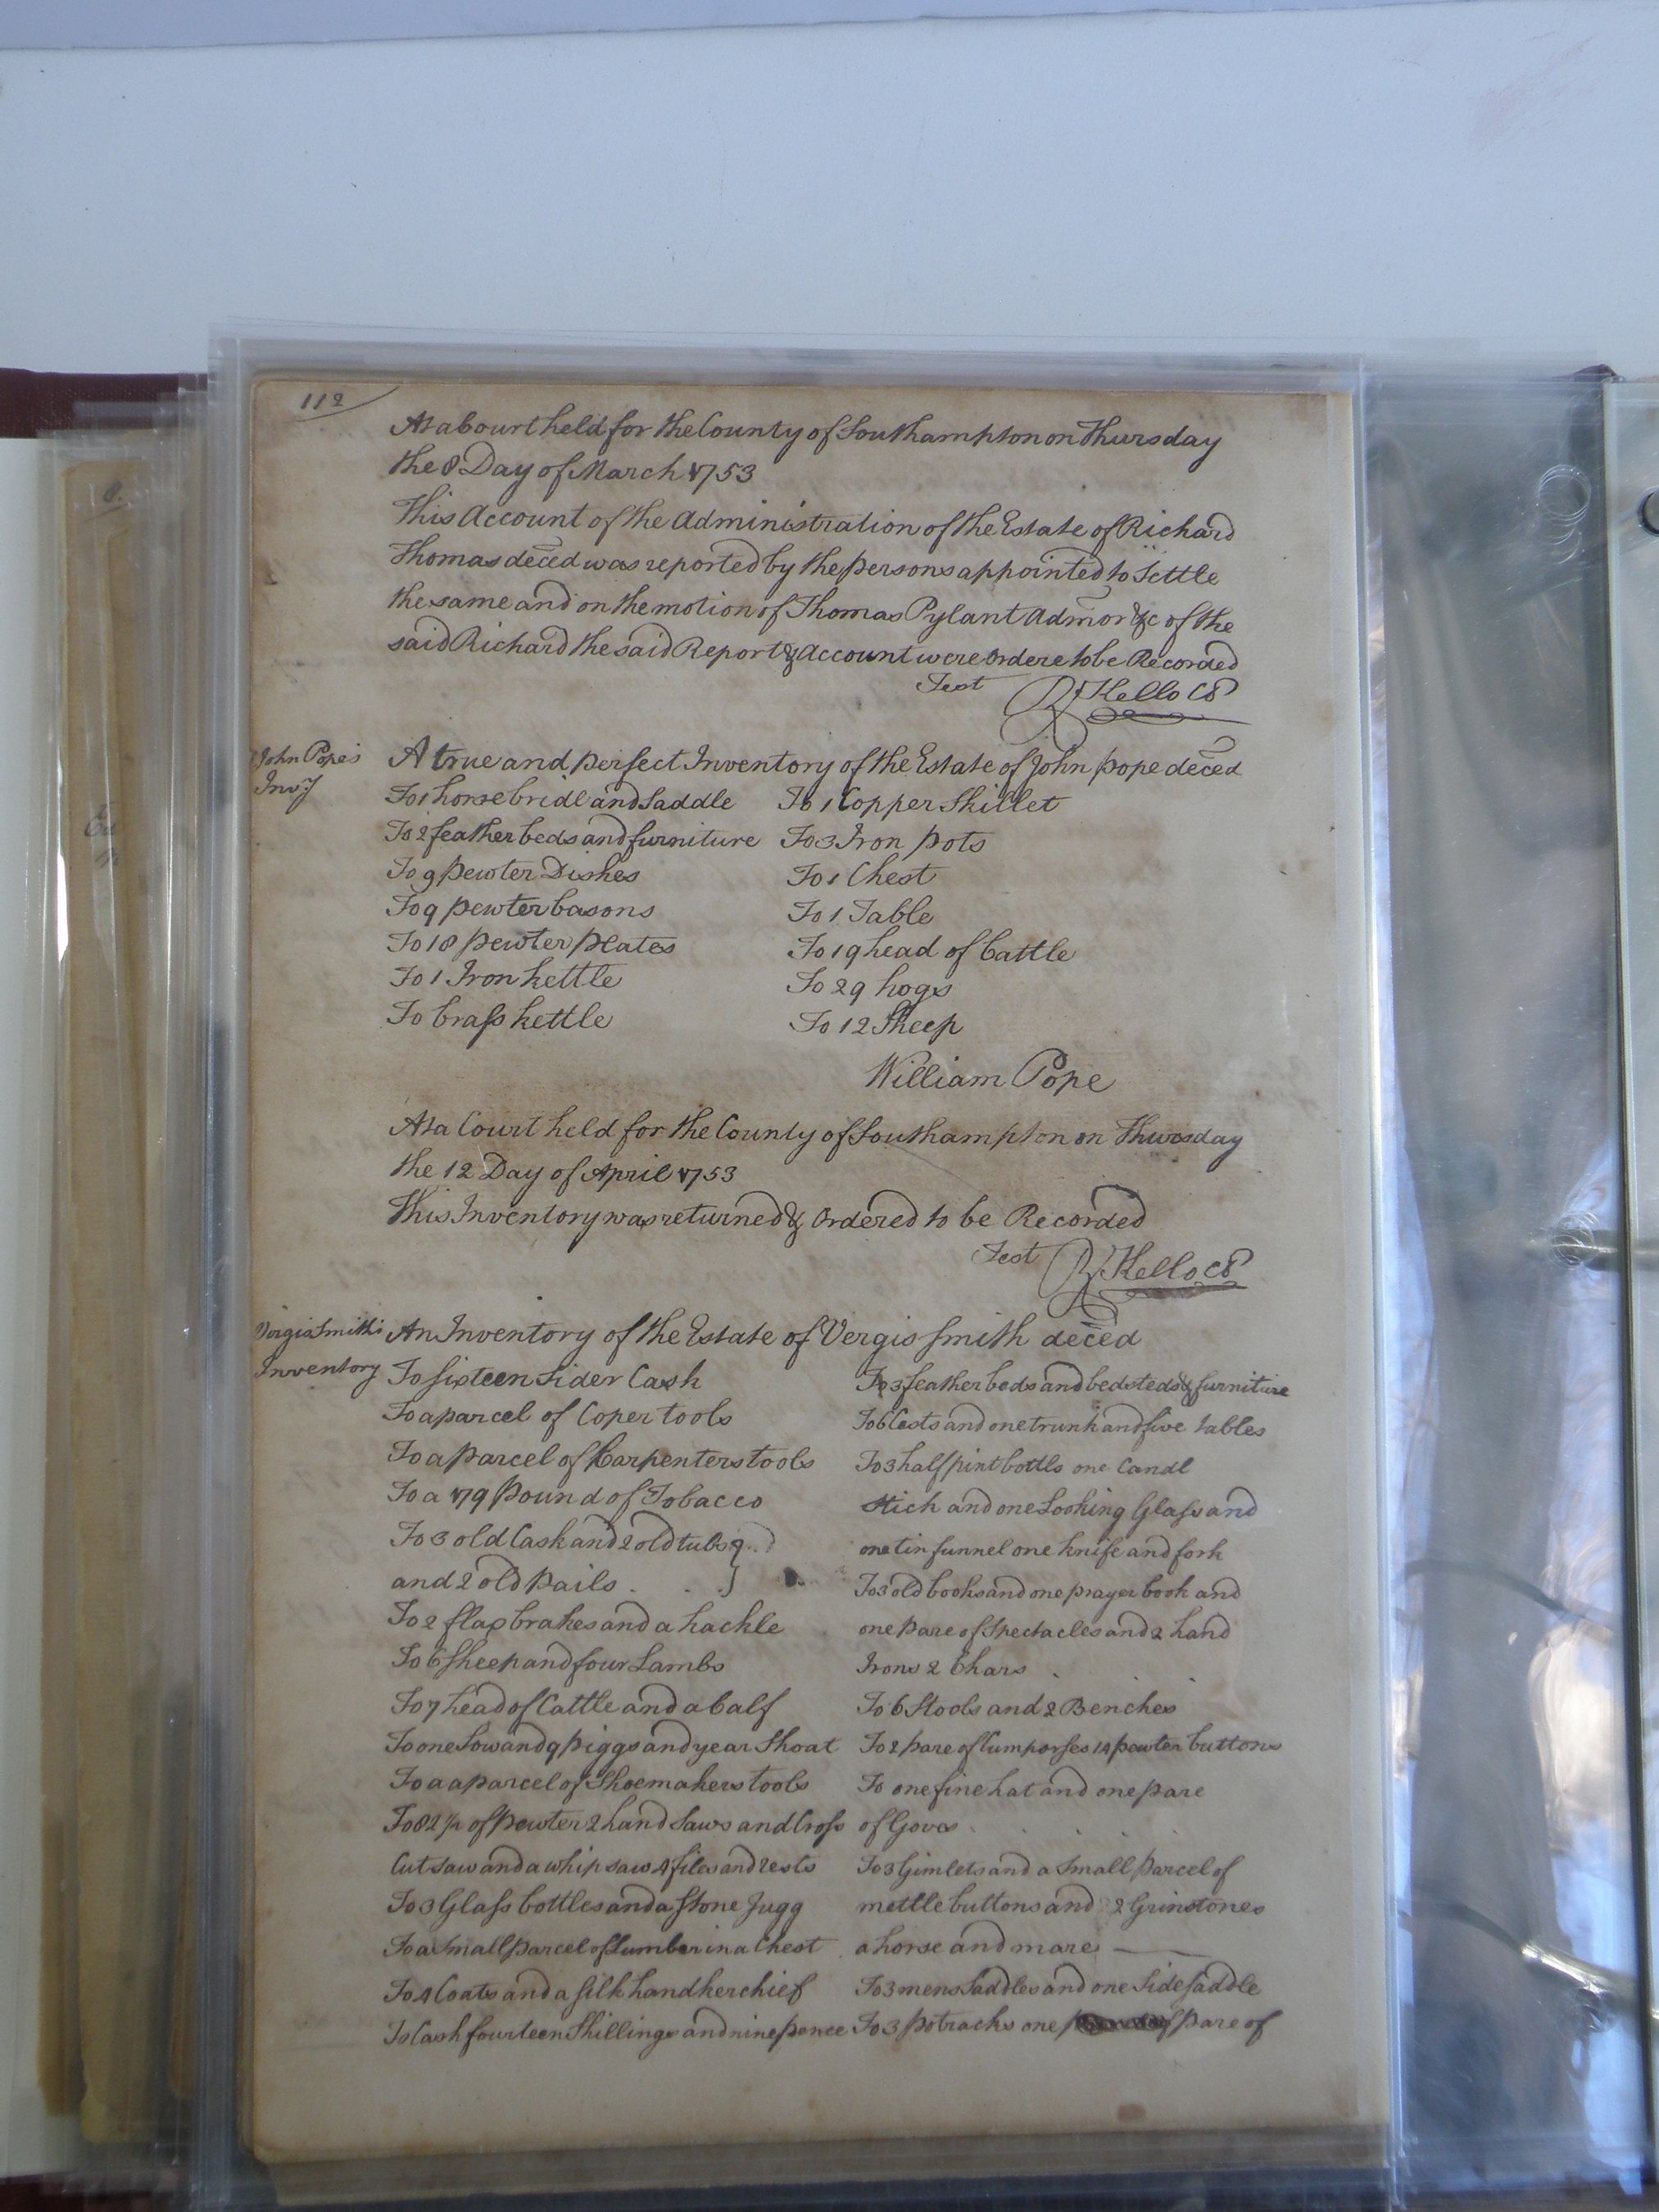 112
At a Court held for the County of Southampton on Thursday
the 8 Day of March 1753
This Account of the Administration of the Estate of Richard
Thomas deced was reported by the persons appointed to Settle
the same and on the motion of Thomas Pylant Admor &c of the
said Richard the said Report & Account were ordere to be Recorded
Test R Kello CC
John Pope's
Invy
A true and perfect Inventory of the Estate of John Pope deced
To 1 horse bridl and Saddle
To 2 feather beds and furniture
To 9 Pewter Dishes
To 9 pewter basons
To 18 Pewter Plates
To 1 Iron kettle
To brass kettle
To 1 Copper Skillet
To 3 Iron pots
To 1 Chest
To 1 Table
To 19 head of Cattle
To 29 hogs
To 12 Sheep
William Pope
At a Court held for the County of Southampton on Thursday
the 12 Day of April 1753
This Inventory was returned & Ordered to be Recorded
Test R Kello CC
Vergis Smith's
Inventory
An Inventory of the Estate of Vergis Smith deced
To sixteen Sider Cask
To a parcel of Coper tools
To a Parcel of Carpenters tools
To a 179 Pound of Tobacco
To 3 old Cask and 2 old tubs
and 2 old Pails
To 2 flax brakes and a hackle
To 6 Sheep and four Lambs
To 7 head of Cattle and a Calf
To one Sow and 9 Piggs and year Shoat
To a a parcel of Shoemakers tools
To 82 of Pewter 2 hand Saws and Cross
Cut Saw and a whip saw 4 files and rests
To 3 Glass bottles and a Stone Jugg
To a Small Parcel of Lumber in a Chest
To 4 Coats and a silk handkerchief
To Cash fourteen Shillings and nine pence
To 3 feather beds and bedsteds & furniture
To 6 Cests and one trunk and five tables
To 3 half pint bottls one Candl
Stick and one Looking Glass and
one tin funnel one knife and fork
To 3 old books and one prayer book and
one Pare of Spectacles and 2 hand
Irons 2 Chars
To 6 Stools and 2 Benches
To 2 pare of Cumpasses 14 pewter buttons
To one fine hat and one pare
of Goves
To 3 Gimlets and a Small Parcel of
mettle buttons and 2 Grinstones
a horse and mare
To 3 mens Saddles and one Side Saddle
To 3 potracks one pare of